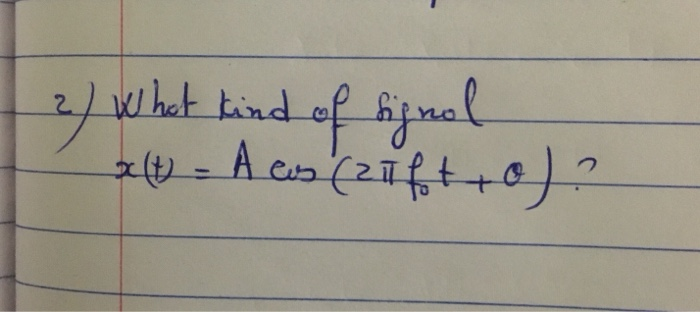 2) What kind of signal
x(t) = A cos (2π f₀ t + θ) ?